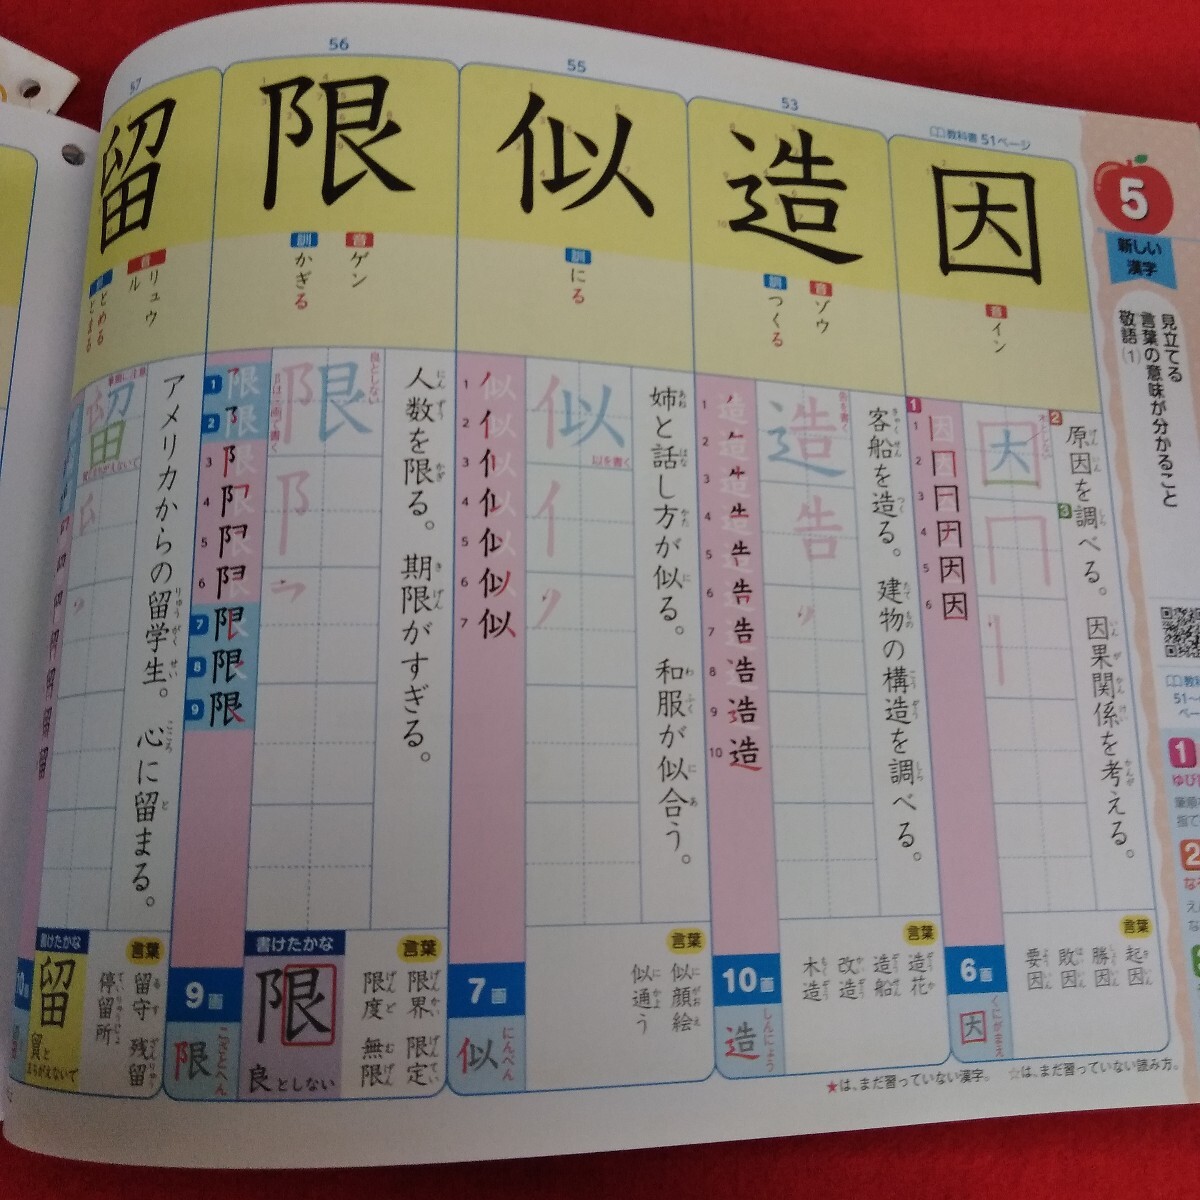 5
新しい
漢字
見立てる
言葉の意味が分かること
敬語(1)
教科書 51ページ
因
音
イン
原因を調べる。因果関係を考える。
1
2
3
4
5
6
6画
因
くにがまえ
言葉
起因
勝因
敗因
要因
53
造
音
ゾウ
訓
つくる
客船を造る。建物の構造を調べる。
告を書く
1
2
3
4
5
6
7
8
9
10
10画
造
しんにょう
言葉
造花
造船
改造
木造
55
似
訓
にる
姉と話し方が似る。和服が似合う。
以を書く
1
2
3
4
5
6
7
7画
似
にんべん
言葉
似顔絵
似通う
56
限
音
ゲン
訓
かぎる
人数を限る。期限がすぎる。
良としない
1
2
3
4
5
6
7
8
9
9画
限
こざとへん
言葉
限界 限定
限度 無限
書けたかな
限
良としない
57
留
音
リュウ
ル
訓
とめる
とまる
アメリカからの留学生。心に留まる。
10画
言葉
留守 残留
停留所
書けたかな
留
貿と
まちがえないで
★は、まだ習っていない漢字。 ☆は、まだ習っていない読み方。